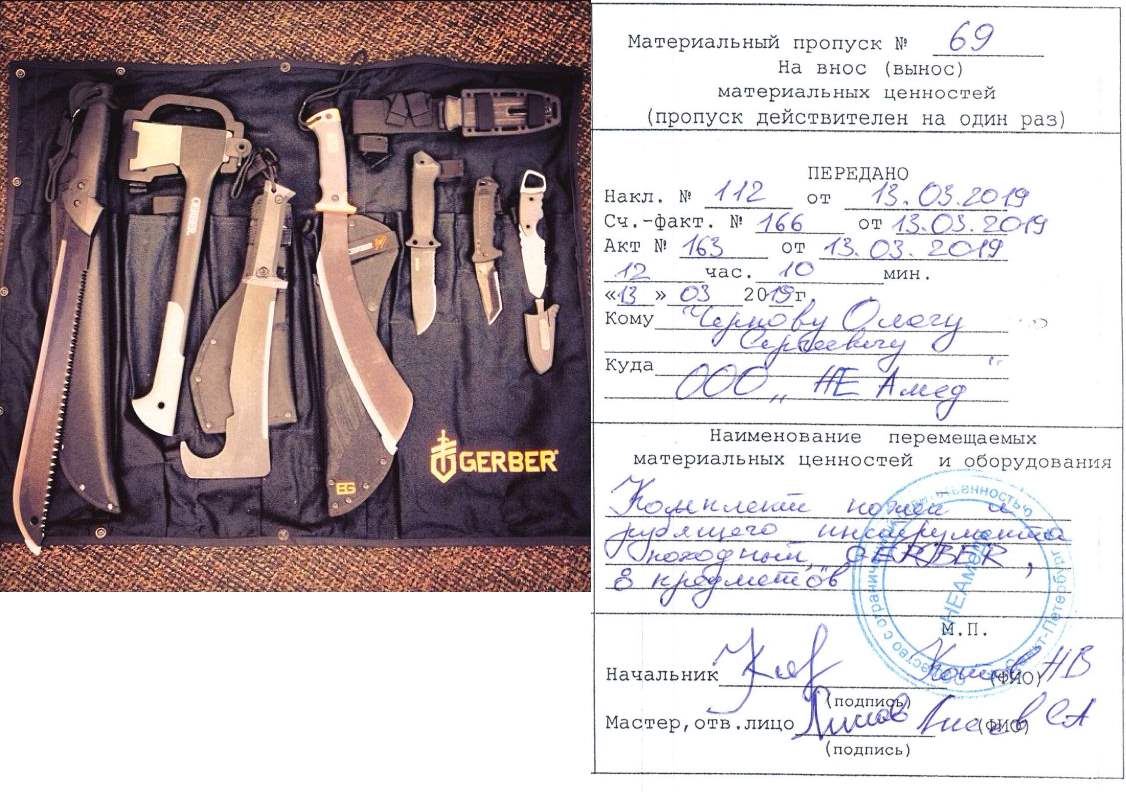 GERBER
EG
Материальный пропуск № 69
На внос (вынос)
материальных ценностей
(пропуск действителен на один раз)
ПЕРЕДАНО
Накл. № 112 от 13.03.2019
Сч.-факт. № 166 от 13.03.2019
Акт № 163 от 13.03.2019
12 час. 10 мин.
«13» 03 2019г
Кому Чернову Олегу
Сергеевичу
Куда
ООО „НЕ Амед"
Наименование перемещаемых
материальных ценностей и оборудования
Комплект ножей и
рубящего инструмента
походный, „GERBER,
8 предметов
НЕАмед
М.П.
Начальник Котов НВ (ФИО)
(подпись)
Мастер,отв.лицо СА (ФИО)
(подпись)